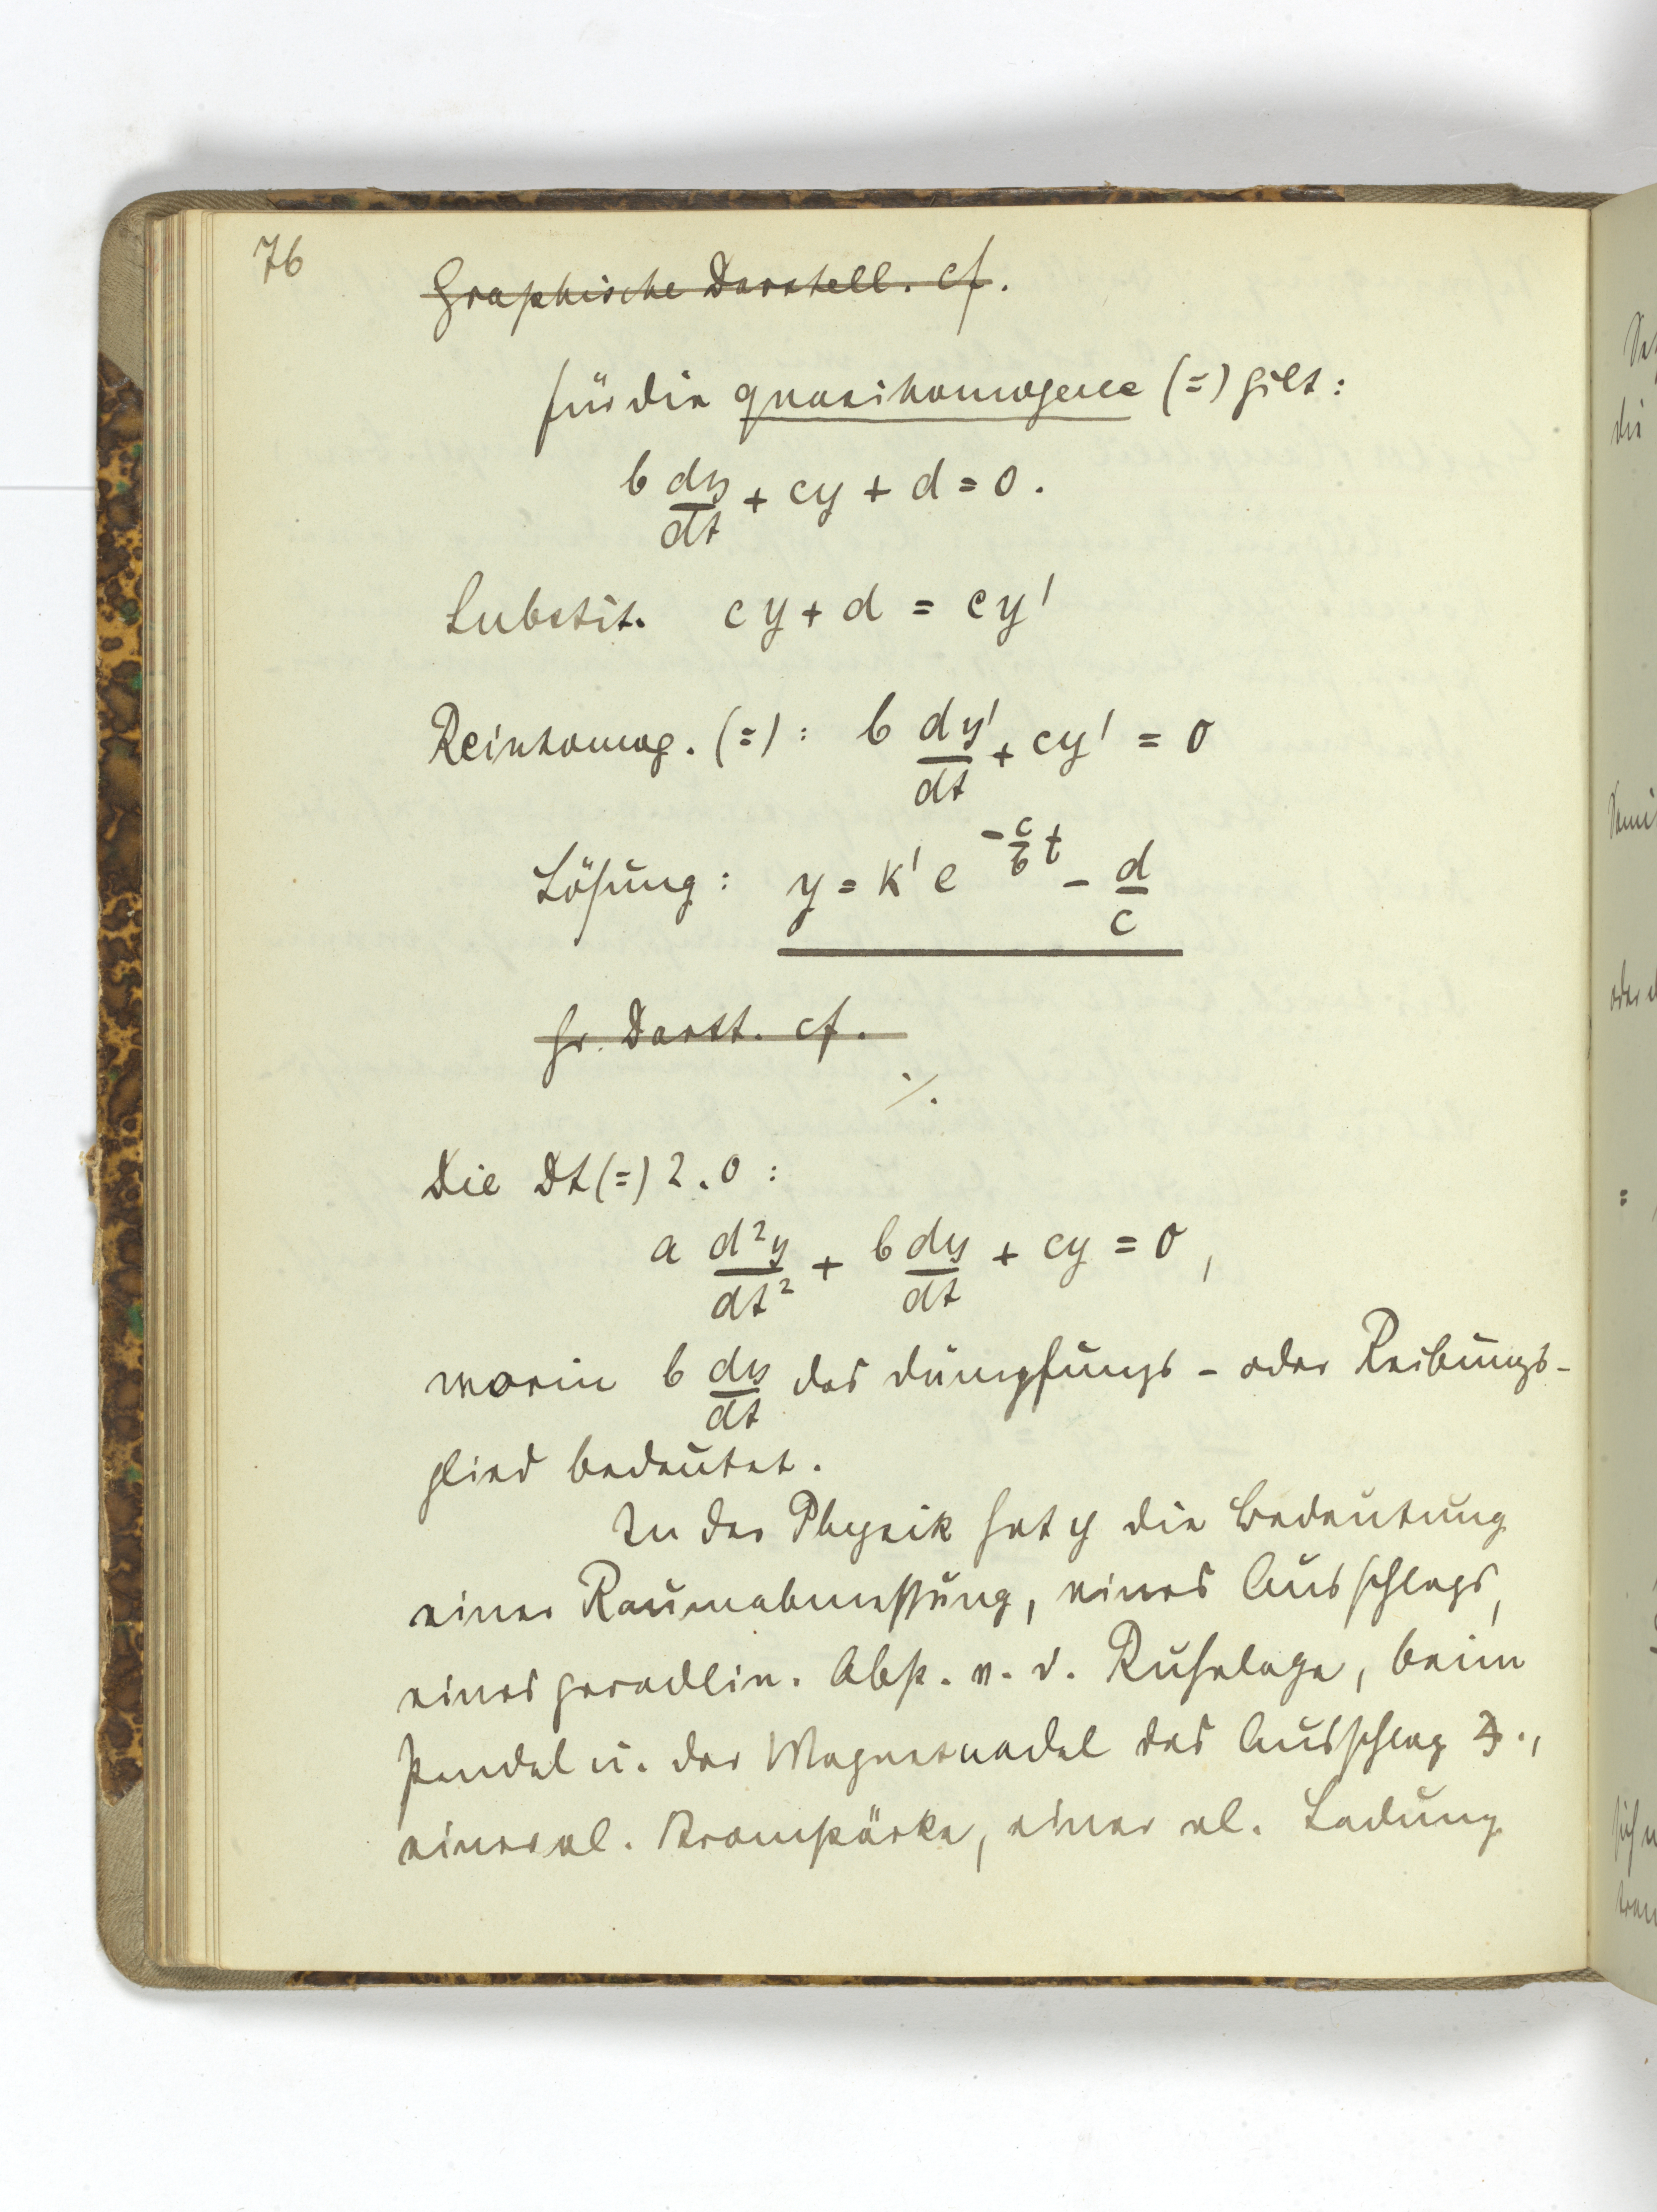 76
Graphische Darstell. cf.
für die quasihomogene (=) gilt:
b dy/dt + cy + d = 0.
Substit. cy + d = cy'
Reinhomog. (=): b dy'/dt + cy' = 0
Lösung: y = k' e^(-c/b t) - d/c
Gr. Darst. cf.
./.
Die Dt(=) 2.O:
a d²y/dt² + b dy/dt + cy = 0,
worin b dy/dt das Dämpfungs- oder Reibungs-
glied bedeutet.
In der Physik hat y die Bedeutung
einer Raumabmessung, eines Ausschlags,
eines geradlin. Abst. v. d. Ruhelage, beim
Pendel u. der Magnetnadel des Ausschlag ∢.,
einer el. Stromstärke, einer el. Ladung